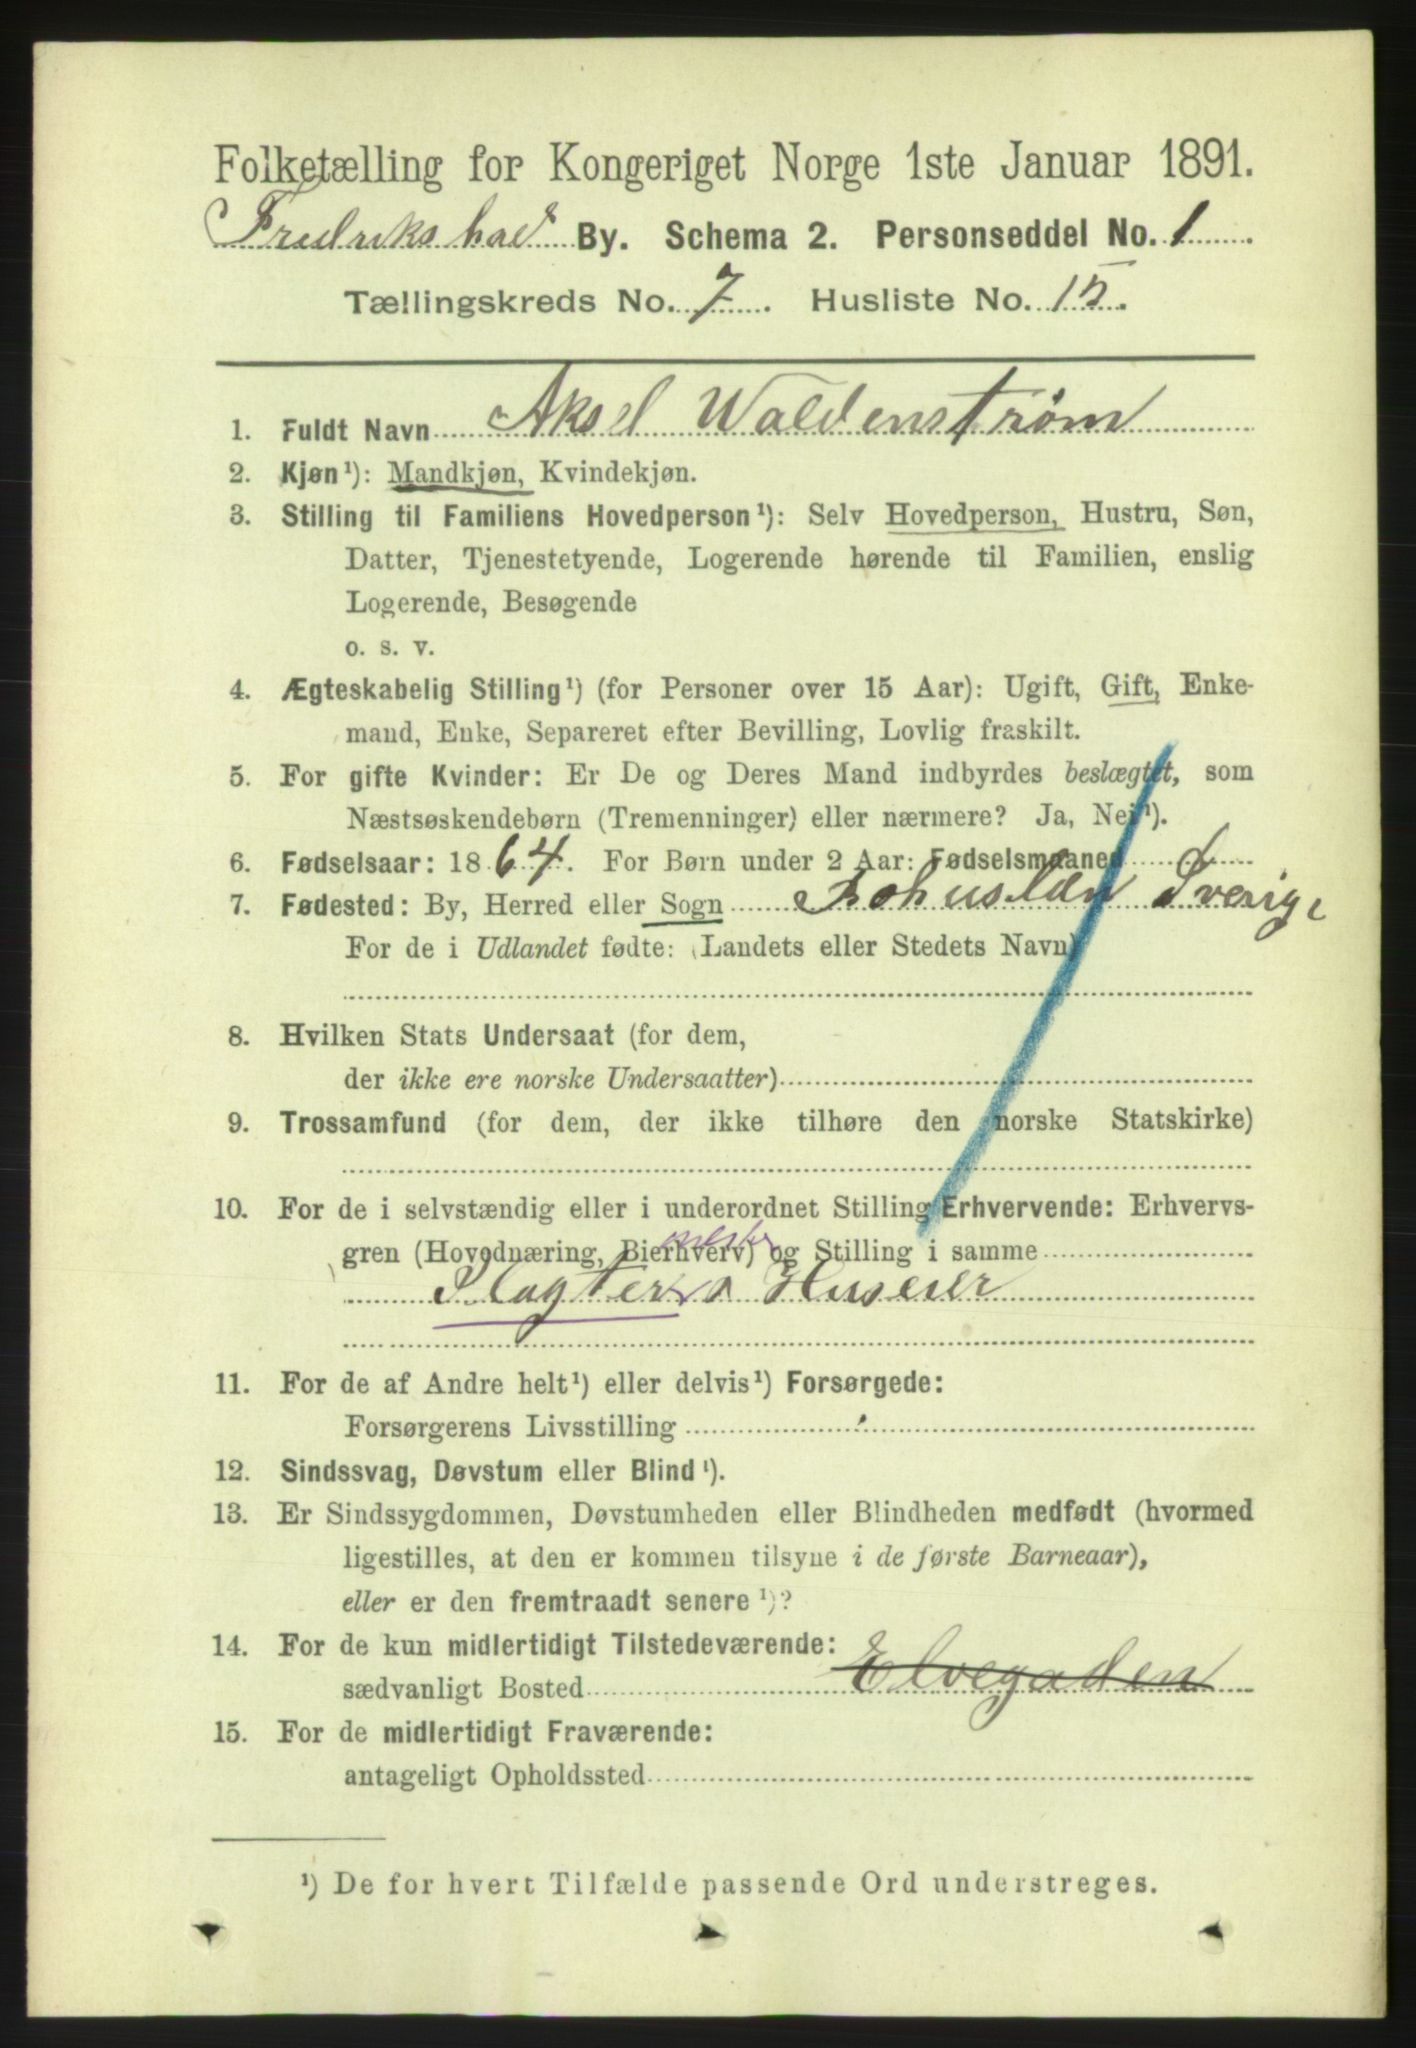 Folketælling for Kongeriget Norge 1ste Januar 1891.
Fredrikshad By. Schema 2. Personseddel No. 1
Tællingskreds No. 7. Husliste No. 15.
1. Fuldt Navn Aksel Waldenstrøm
2. Kjøn¹): Mandkjøn, Kvindekjøn.
3. Stilling til Familiens Hovedperson¹): Selv Hovedperson, Hustru, Søn,
Datter, Tjenestetyende, Logerende hørende til Familien, enslig
Logerende, Besøgende
o. s. v.
4. Ægteskabelig Stilling¹) (for Personer over 15 Aar): Ugift, Gift, Enke-
mand, Enke, Separeret efter Bevilling, Lovlig fraskilt.
5. For gifte Kvinder: Er De og Deres Mand indbyrdes beslægtet, som
Næstsøskendebørn (Tremenninger) eller nærmere? Ja, Nei¹).
6. Fødselsaar: 1864. For Børn under 2 Aar: Fødselsmaaned
7. Fødested: By, Herred eller Sogn Bohuslän Sverige
For de i Udlandet fødte: (Landets eller Stedets Navn)
8. Hvilken Stats Undersaat (for dem,
der ikke ere norske Undersaatter)
9. Trossamfund (for dem, der ikke tilhøre den norske Statskirke)
10. For de i selvstændig eller i underordnet Stilling Erhvervende: Erhvervs-
gren (Hovednæring, Bierhverv) og Stilling i samme
Slagter Huseier
11. For de af Andre helt¹) eller delvis¹) Forsørgede:
Forsørgerens Livsstilling
12. Sindssvag, Døvstum eller Blind¹).
13. Er Sindssygdommen, Døvstumheden eller Blindheden medfødt (hvormed
ligestilles, at den er kommen tilsyne i de første Barneaar),
eller er den fremtraadt senere¹)?
14. For de kun midlertidigt Tilstedeværende:
sædvanligt Bosted Elvegaden
15. For de midlertidigt Fraværende:
antageligt Opholdssted
¹) De for hvert Tilfælde passende Ord understreges.